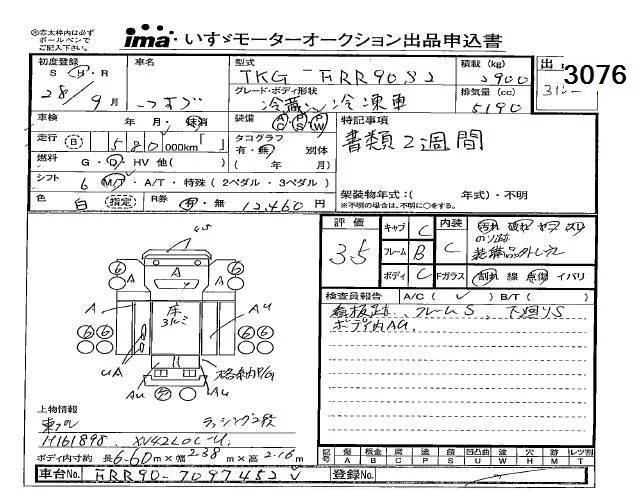 ※太枠内は必ず
ボールペンで
ご記入下さい。
ima・いすゞモーターオークション出品申込書
初度登録 車名 型式 積載(kg) 出
S・H・R TKG-FRR90S2 2900 3076
28/9月 いすゞ グレード・ボディ形状 排気量(cc)
冷蔵冷凍車 5190
車検 年 月・抹消 装備 AC PS PW 特記事項
走行 580,000km タコグラフ 書類2週間
有・無 別体
燃料 G・D HV 他( ) ( 年 月)
シフト 6 M/T・A/T・特殊(2ペダル・3ペダル) 架装物年式:( 年式)・不明
※不明の場合は、不明に○をする。
色 白 指定 R券 有・無 12,460円
評価 キャブ C 内装 汚れ 破れ ヤケ スレ
3.5 フレーム B C のり跡
装備品外し穴
ボディ C Fガラス 割れ 線 点傷 イパリ
検査員報告 A/C( ✓ ) B/T( )
看板跡、フレームS、下廻りS
ボディ内AU.
45
A
6 6
A 床 AU
UA 格納P/G
AU AU
上物情報
東プレ ラッシング2段
H161898. XV42LOC-U.
ボディ内寸約 長6.60m×幅2.38m×高2.16m
記号 傷 板金 腐 塗 錆 凹凸 波 穴 跡 レツ割
A B C P S U W H M T
車台No. FRR90-7097452 登録No.